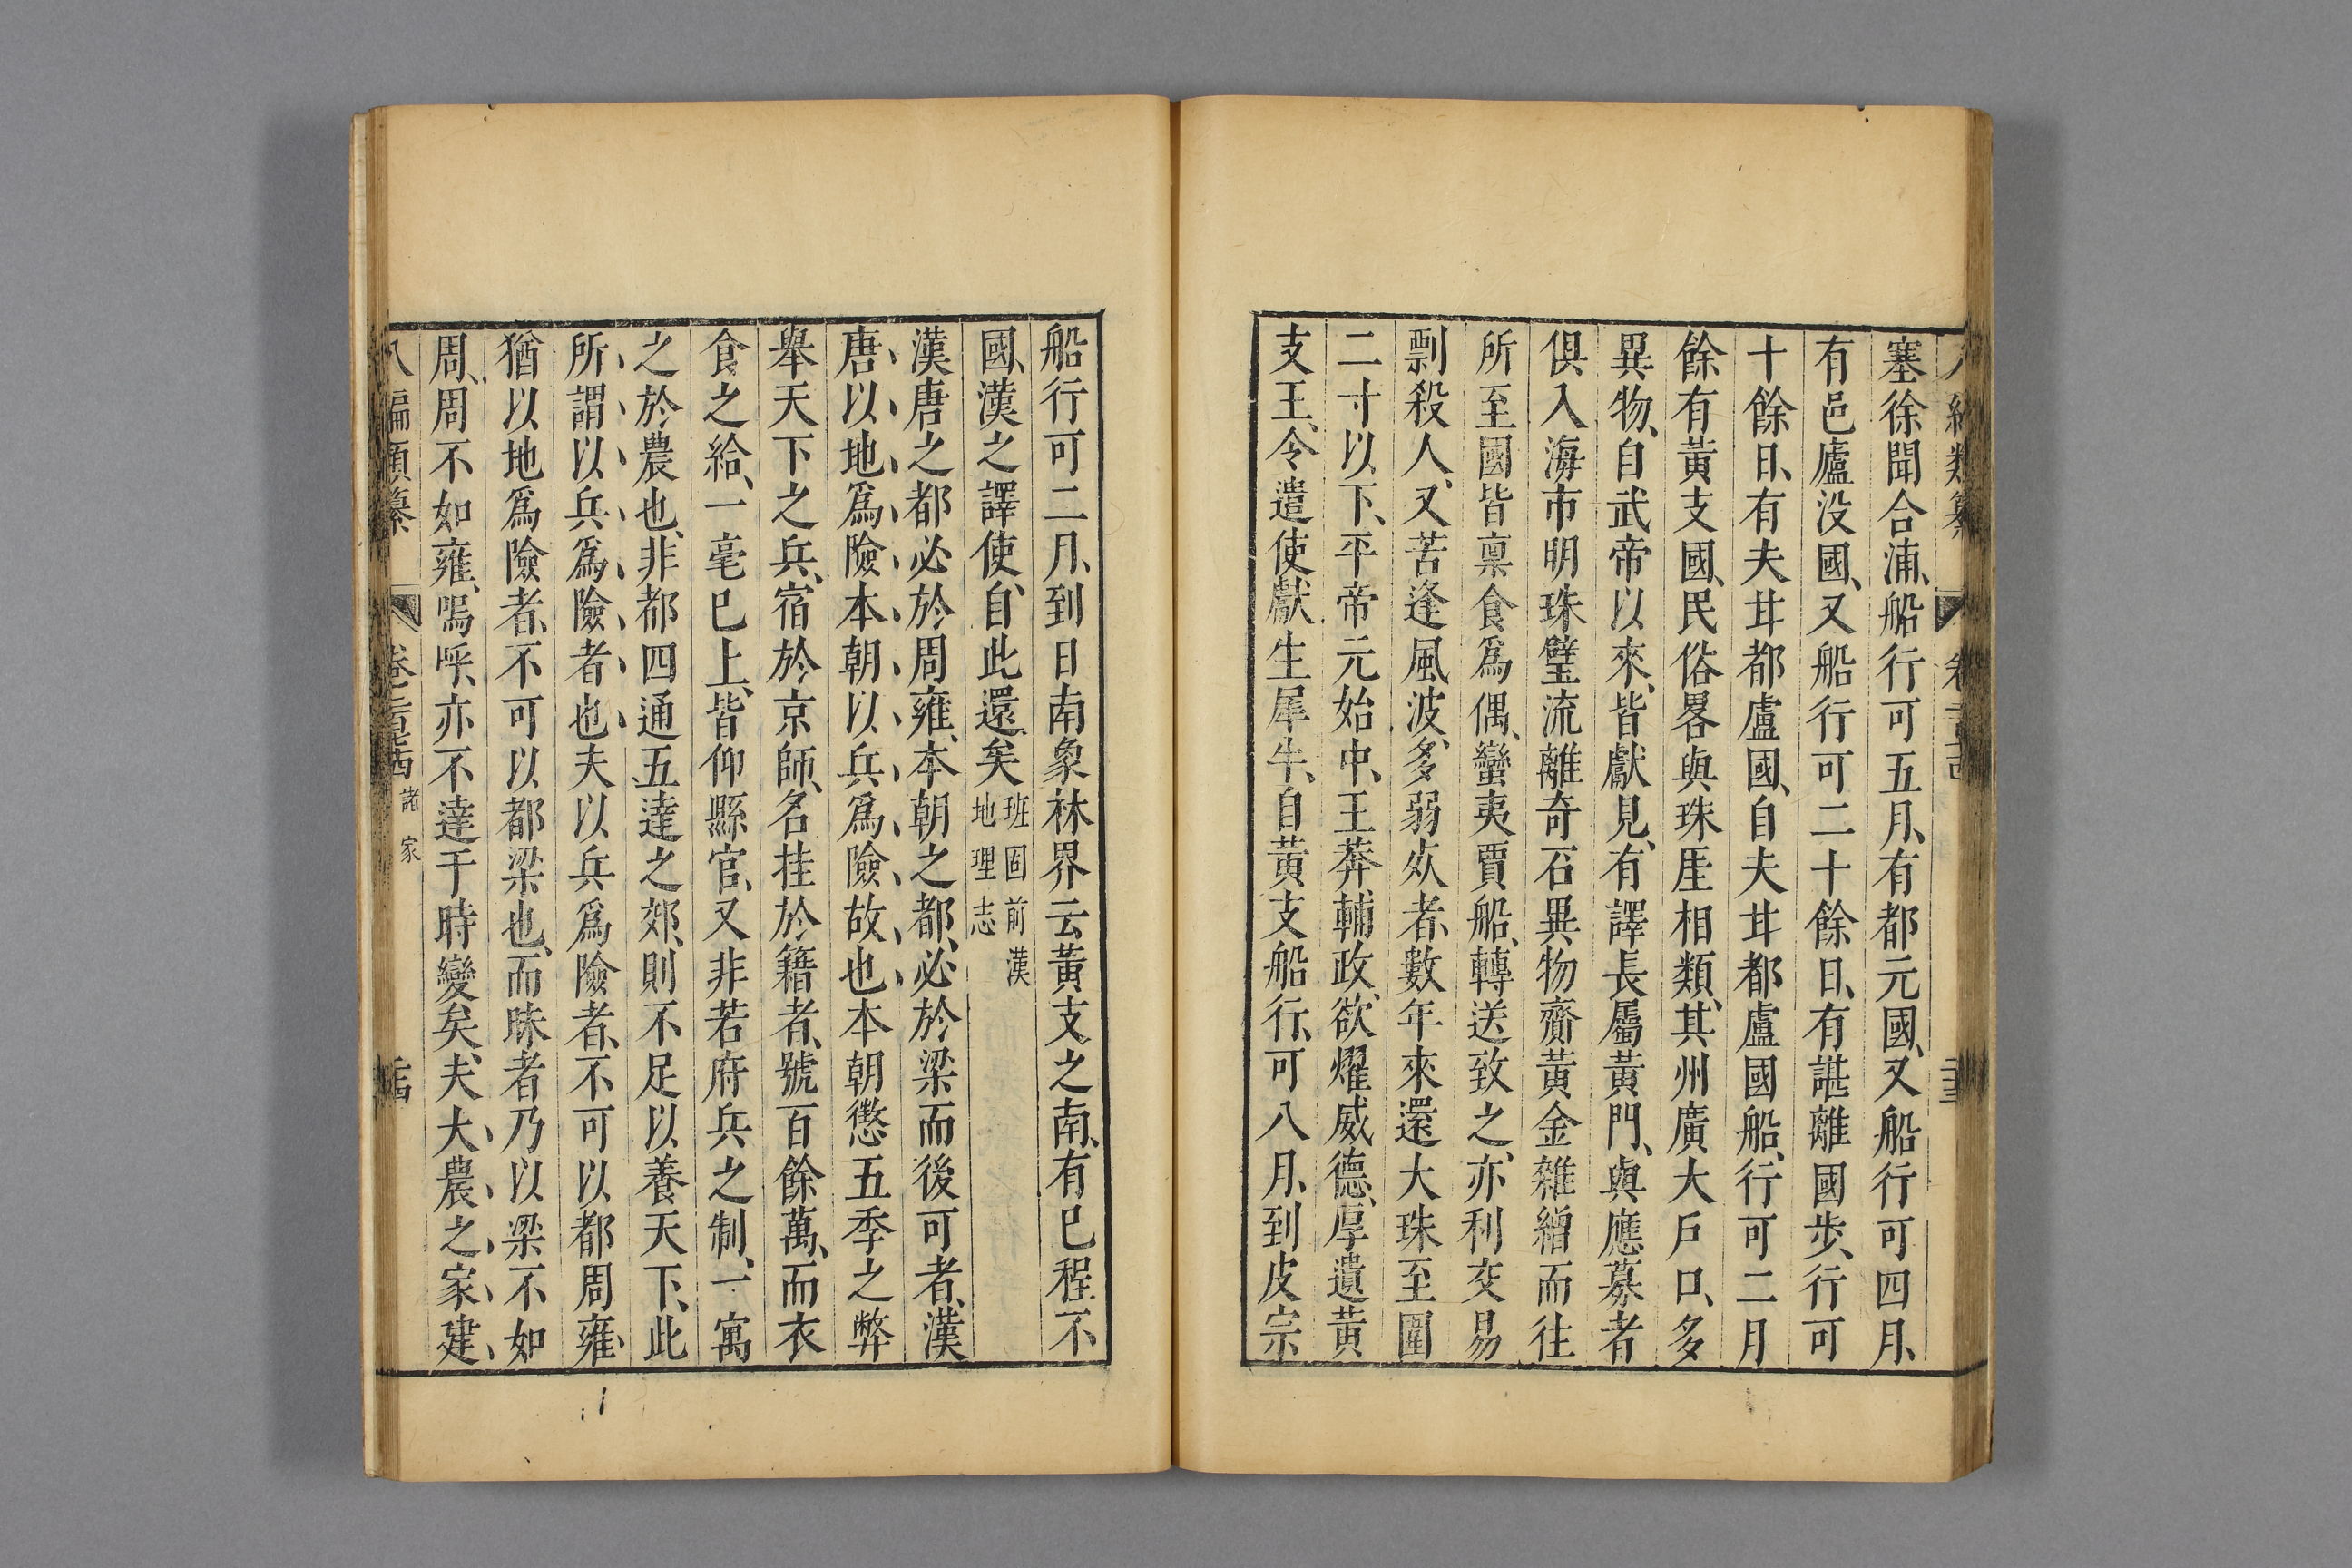 塞徐聞合浦、船行可五月、有都元國、又船行可四月、
有邑廬没國、又船行可二十餘日、有諶離國步、行可
十餘日、有夫甘都盧國、自夫甘都盧國船、行可二月
餘有黃支國、民俗畧與珠厓相類、其州廣大戶口、多
異物、自武帝以來、皆獻見、有譯長屬黃門、與應募者
俱入海市明珠璧流離奇石異物齎黃金雜繒而往
所至國皆禀食爲偶、蠻夷賈船、轉送致之、亦利交易
剽殺人、又苦逢風波、多弱𣧑者、數年來還大珠至圍
二寸以下、平帝元始中、王莽輔政、欲耀威德、厚遺黃
支王、令遣使獻生犀牛、自黃支船行、可八月、到皮宗
船行可二月、到日南象林界云黃支之南、有已程不
國、漢之譯使、自此還矣班固前漢地理志
漢唐之都必於周雍、本朝之都、必於梁而後可者、漢
唐以地爲險本朝以兵爲險故也本朝懲五季之弊
舉天下之兵、宿於京師、名挂於籍者、號百餘萬、而衣
食之給、一毫已上、皆仰縣官、又非若府兵之制、一寓
之於農也、非都四通五達之郊、則不足以養天下、此
所謂以兵爲險者也夫以兵爲險者、不可以都周雍、
猶以地爲險者、不可以都梁也、而昧者乃以梁不如
周、周不如雍、嗚呼、亦不達于時變矣、夫大農之家建
八編類纂
諸家